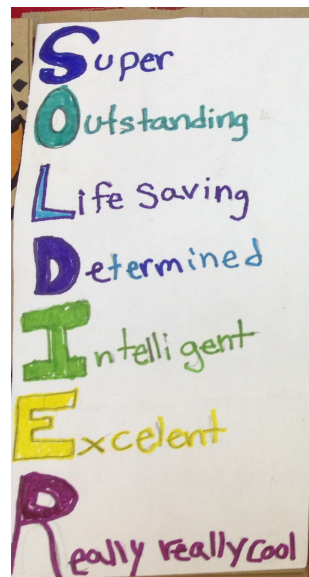 Super
Outstanding
Life Saving
Determined
Intelligent
Excelent
Really really cool